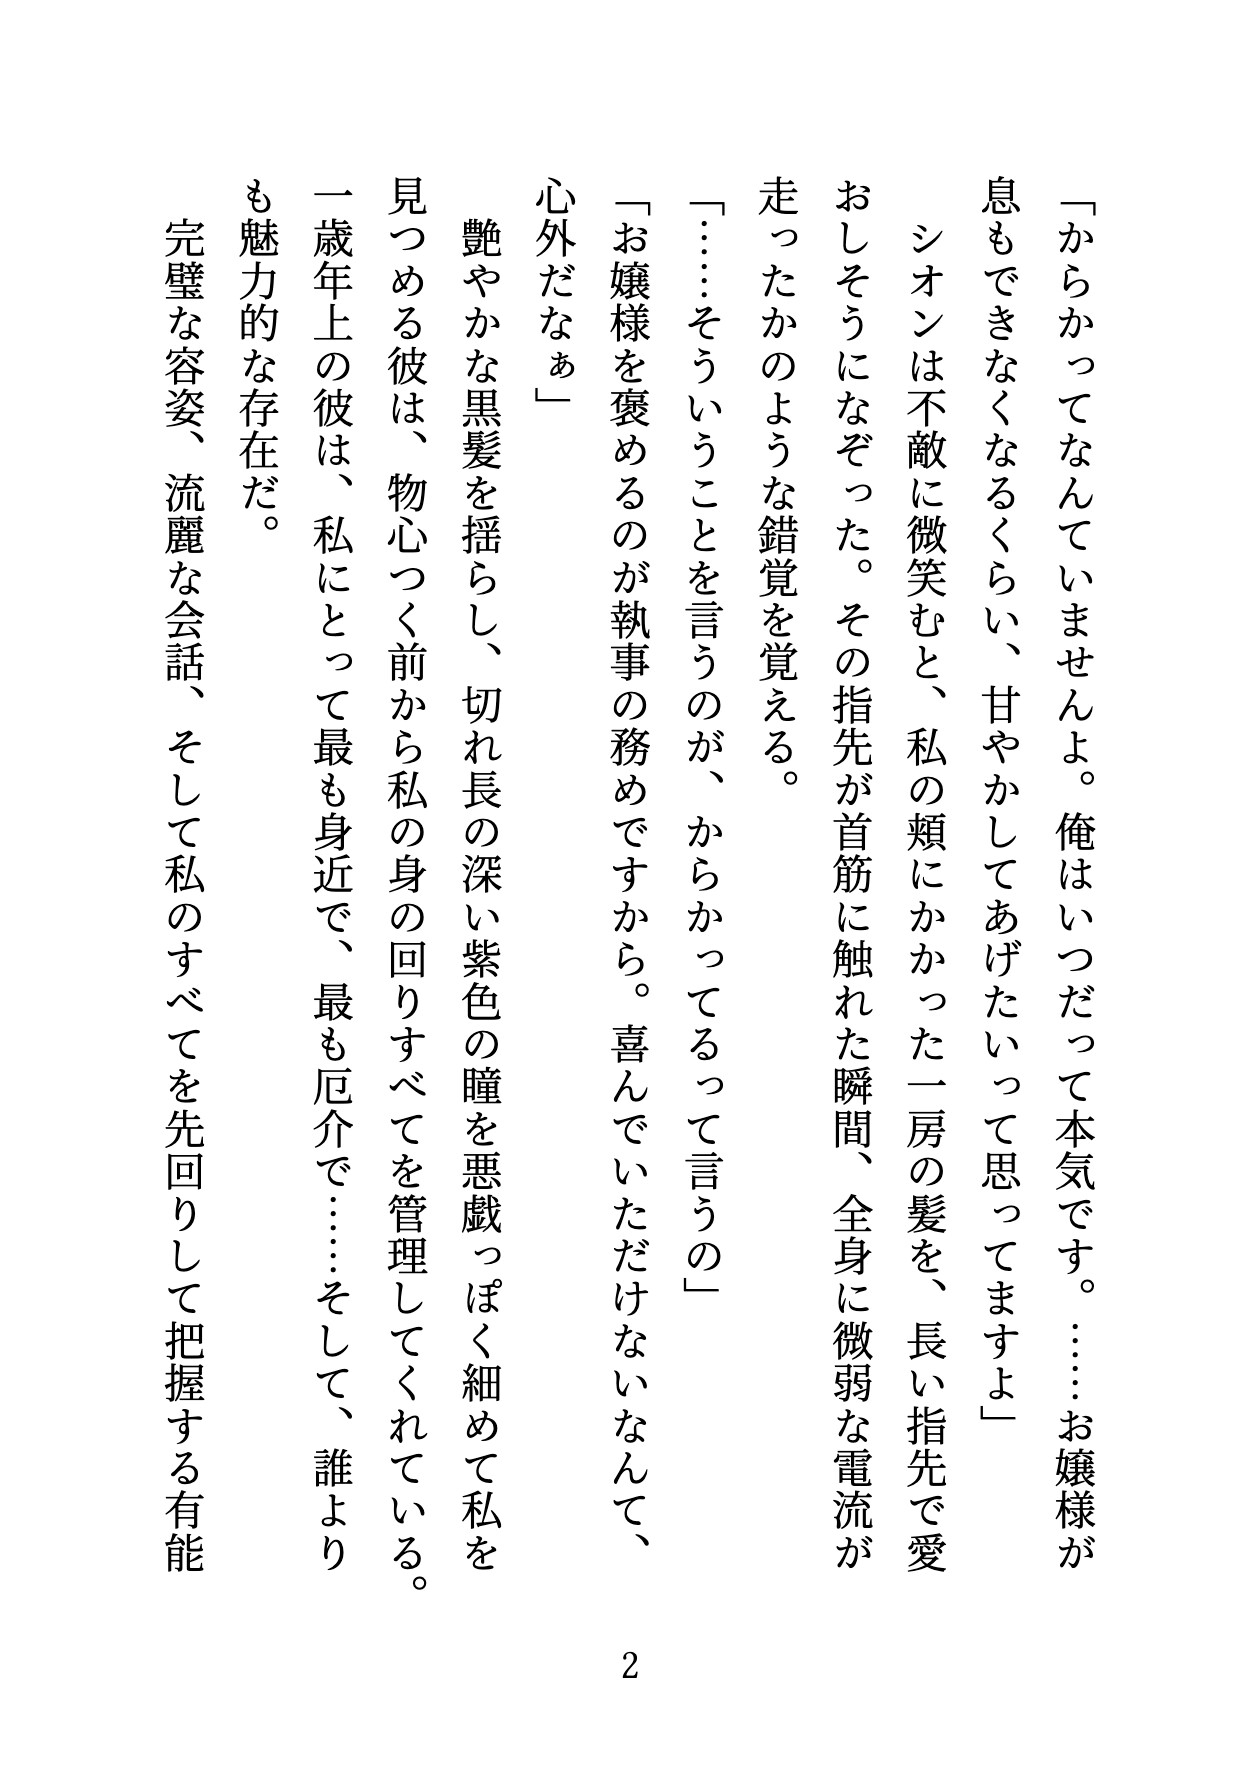 「からかってなんていませんよ。俺はいつだって本気です。……お嬢様が
息もできなくなるくらい、甘やかしてあげたいって思ってますよ」
　シオンは不敵に微笑むと、私の頬にかかった一房の髪を、長い指先で愛
おしそうになぞった。その指先が首筋に触れた瞬間、全身に微弱な電流が
走ったかのような錯覚を覚える。
「……そういうことを言うのが、からかってるって言うの」
「お嬢様を褒めるのが執事の務めですから。喜んでいただけないなんて、
心外だなぁ」
　艶やかな黒髪を揺らし、切れ長の深い紫色の瞳を悪戯っぽく細めて私を
見つめる彼は、物心つく前から私の身の回りすべてを管理してくれている。
一歳年上の彼は、私にとって最も身近で、最も厄介で……そして、誰より
も魅力的な存在だ。
　完璧な容姿、流麗な会話、そして私のすべてを先回りして把握する有能
2